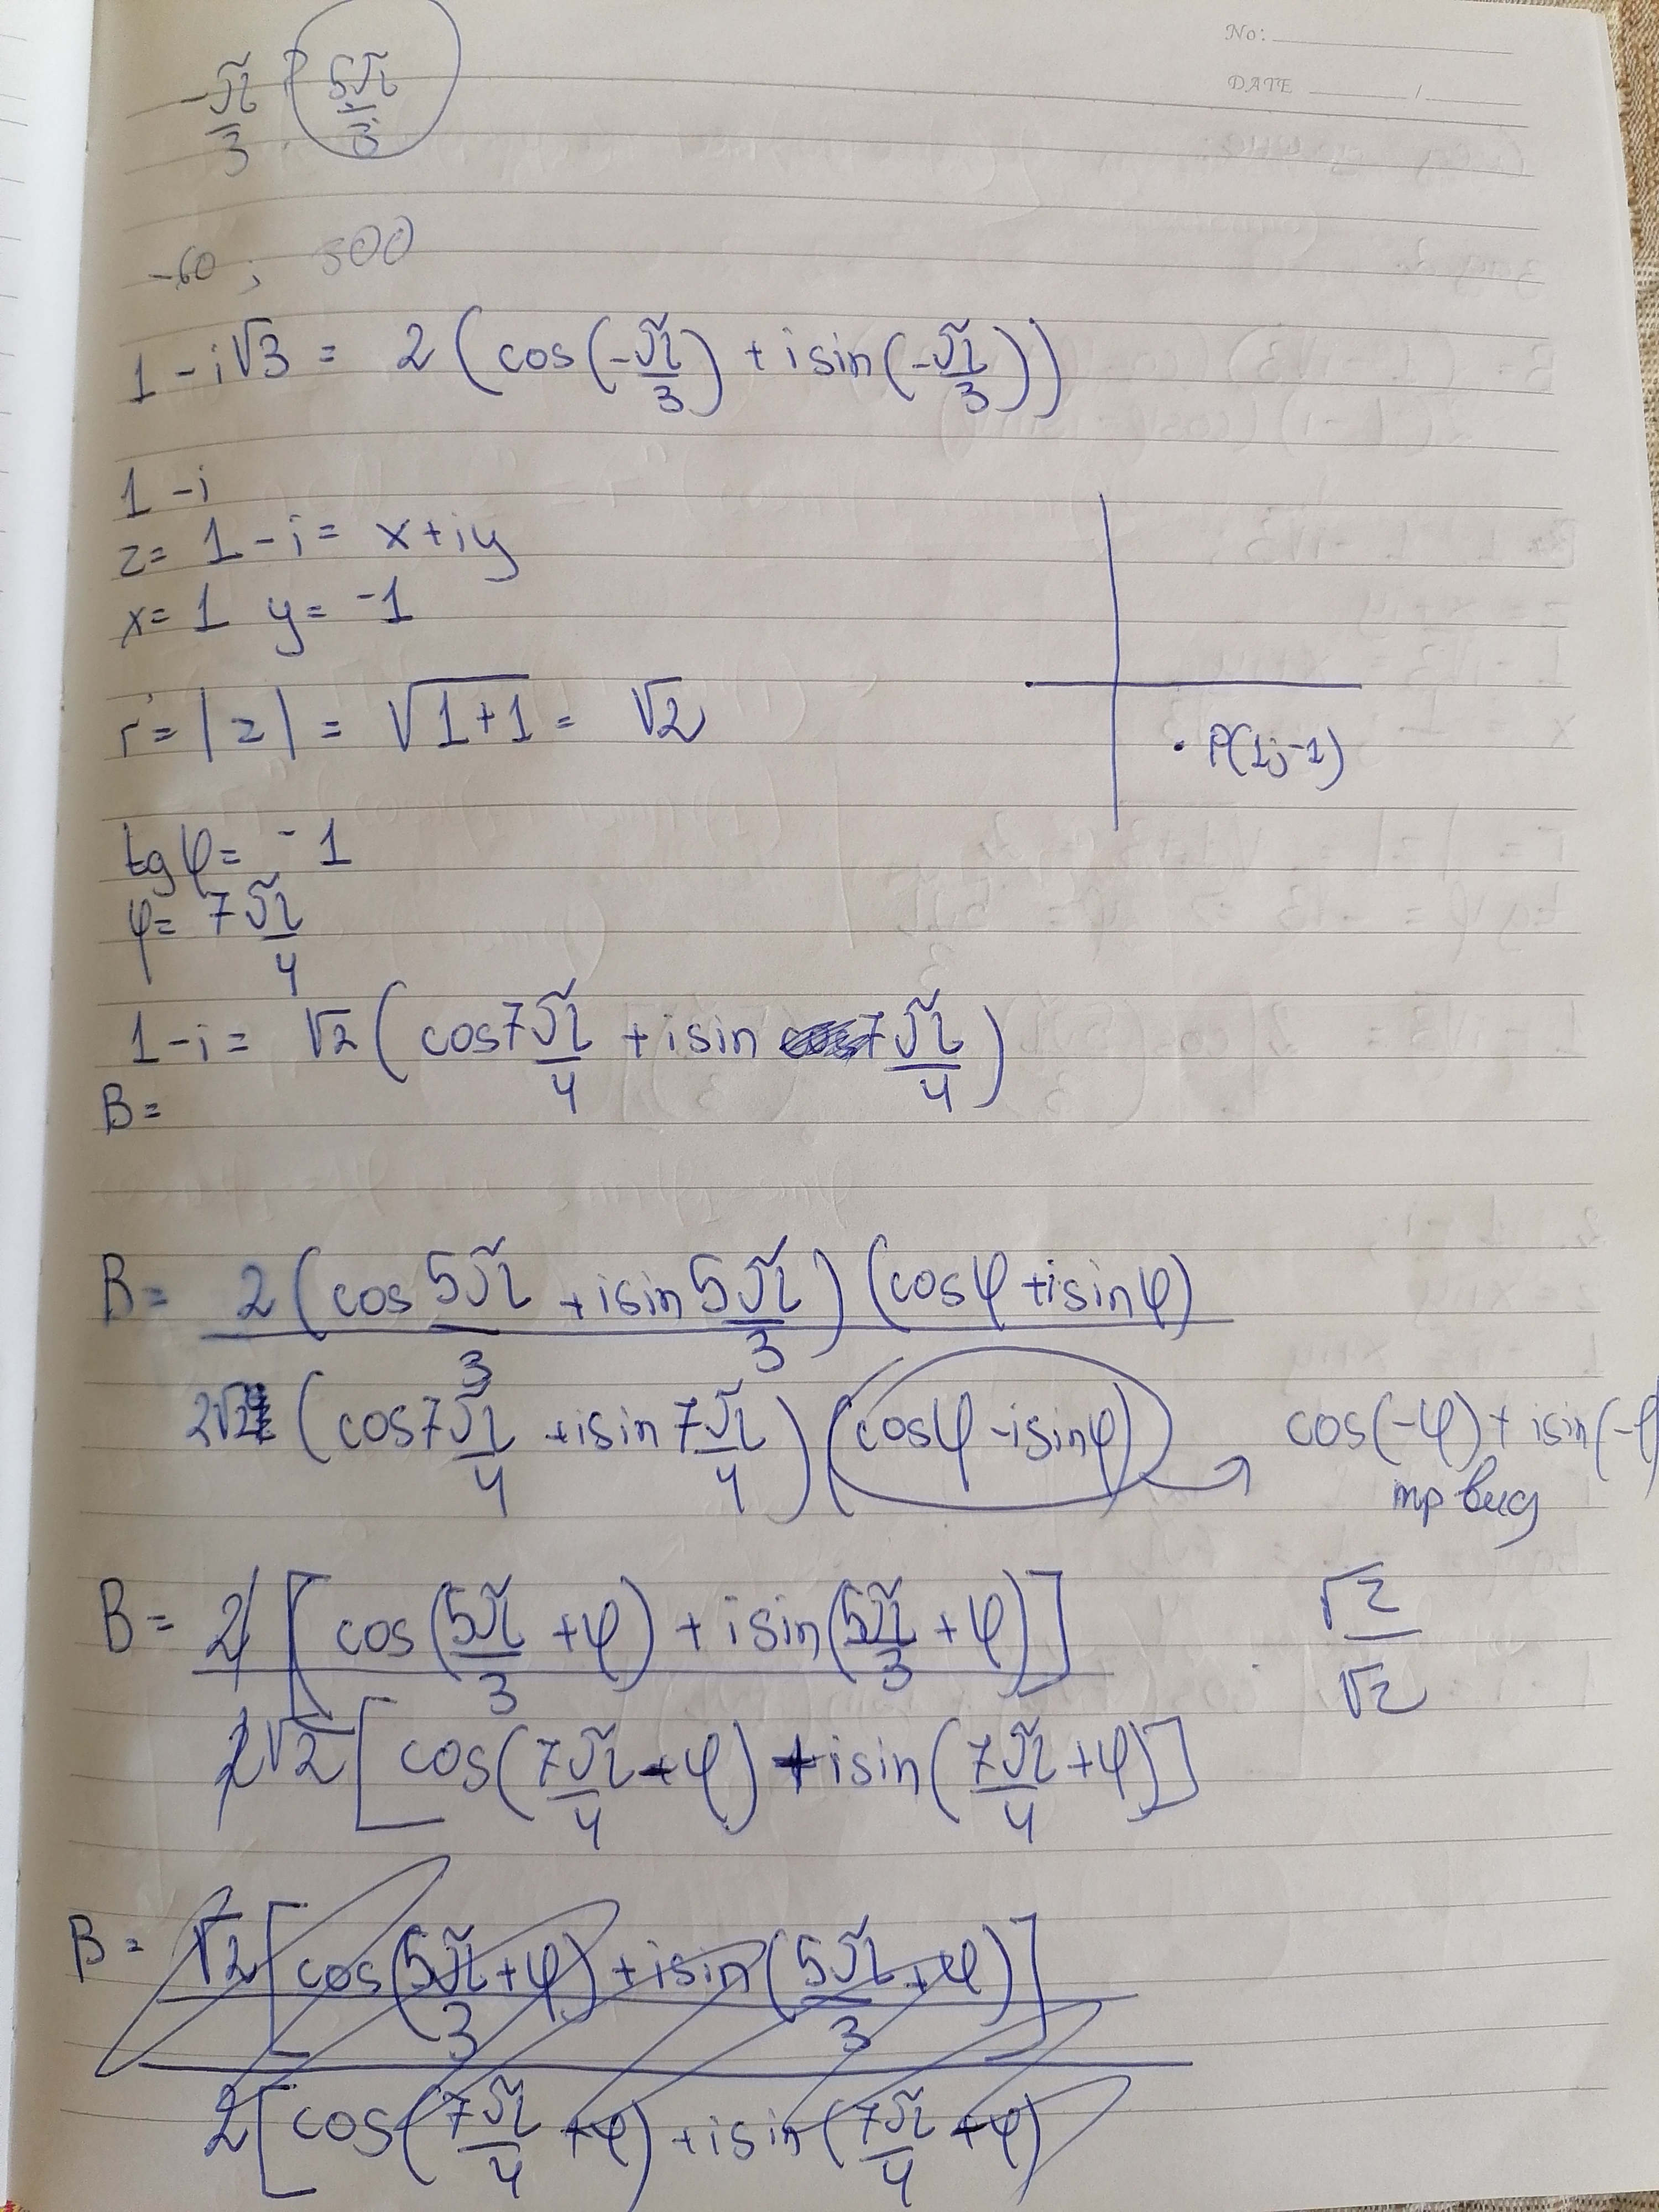 No:
DATE /
-π/3 ; 5π/3
-60 ; 300
1 - i√3 = 2 (cos(-π/3) + i sin(-π/3))
1 - i
z = 1 - i = x + iy
x = 1 y = -1
r = |z| = √(1+1) = √2
P(1;-1)
tg φ = -1
φ = 7π/4
1 - i = √2 (cos 7π/4 + i sin 7π/4)
B =
B = 2 (cos 5π/3 + i sin 5π/3) (cos φ + i sin φ)
2√2 (cos 7π/4 + i sin 7π/4) (cos φ - i sin φ) → cos(-φ) + i sin(-φ
тр вид
B = 2 [cos(5π/3 + φ) + i sin(5π/3 + φ)]
√2/√2
2√2 [cos(7π/4 - φ) + i sin(7π/4 + φ)]
B = √2 [cos(5π/3 + φ) + i sin(5π/3 + φ)]
2 [cos(7π/4 + φ) + i sin(7π/4 + φ)